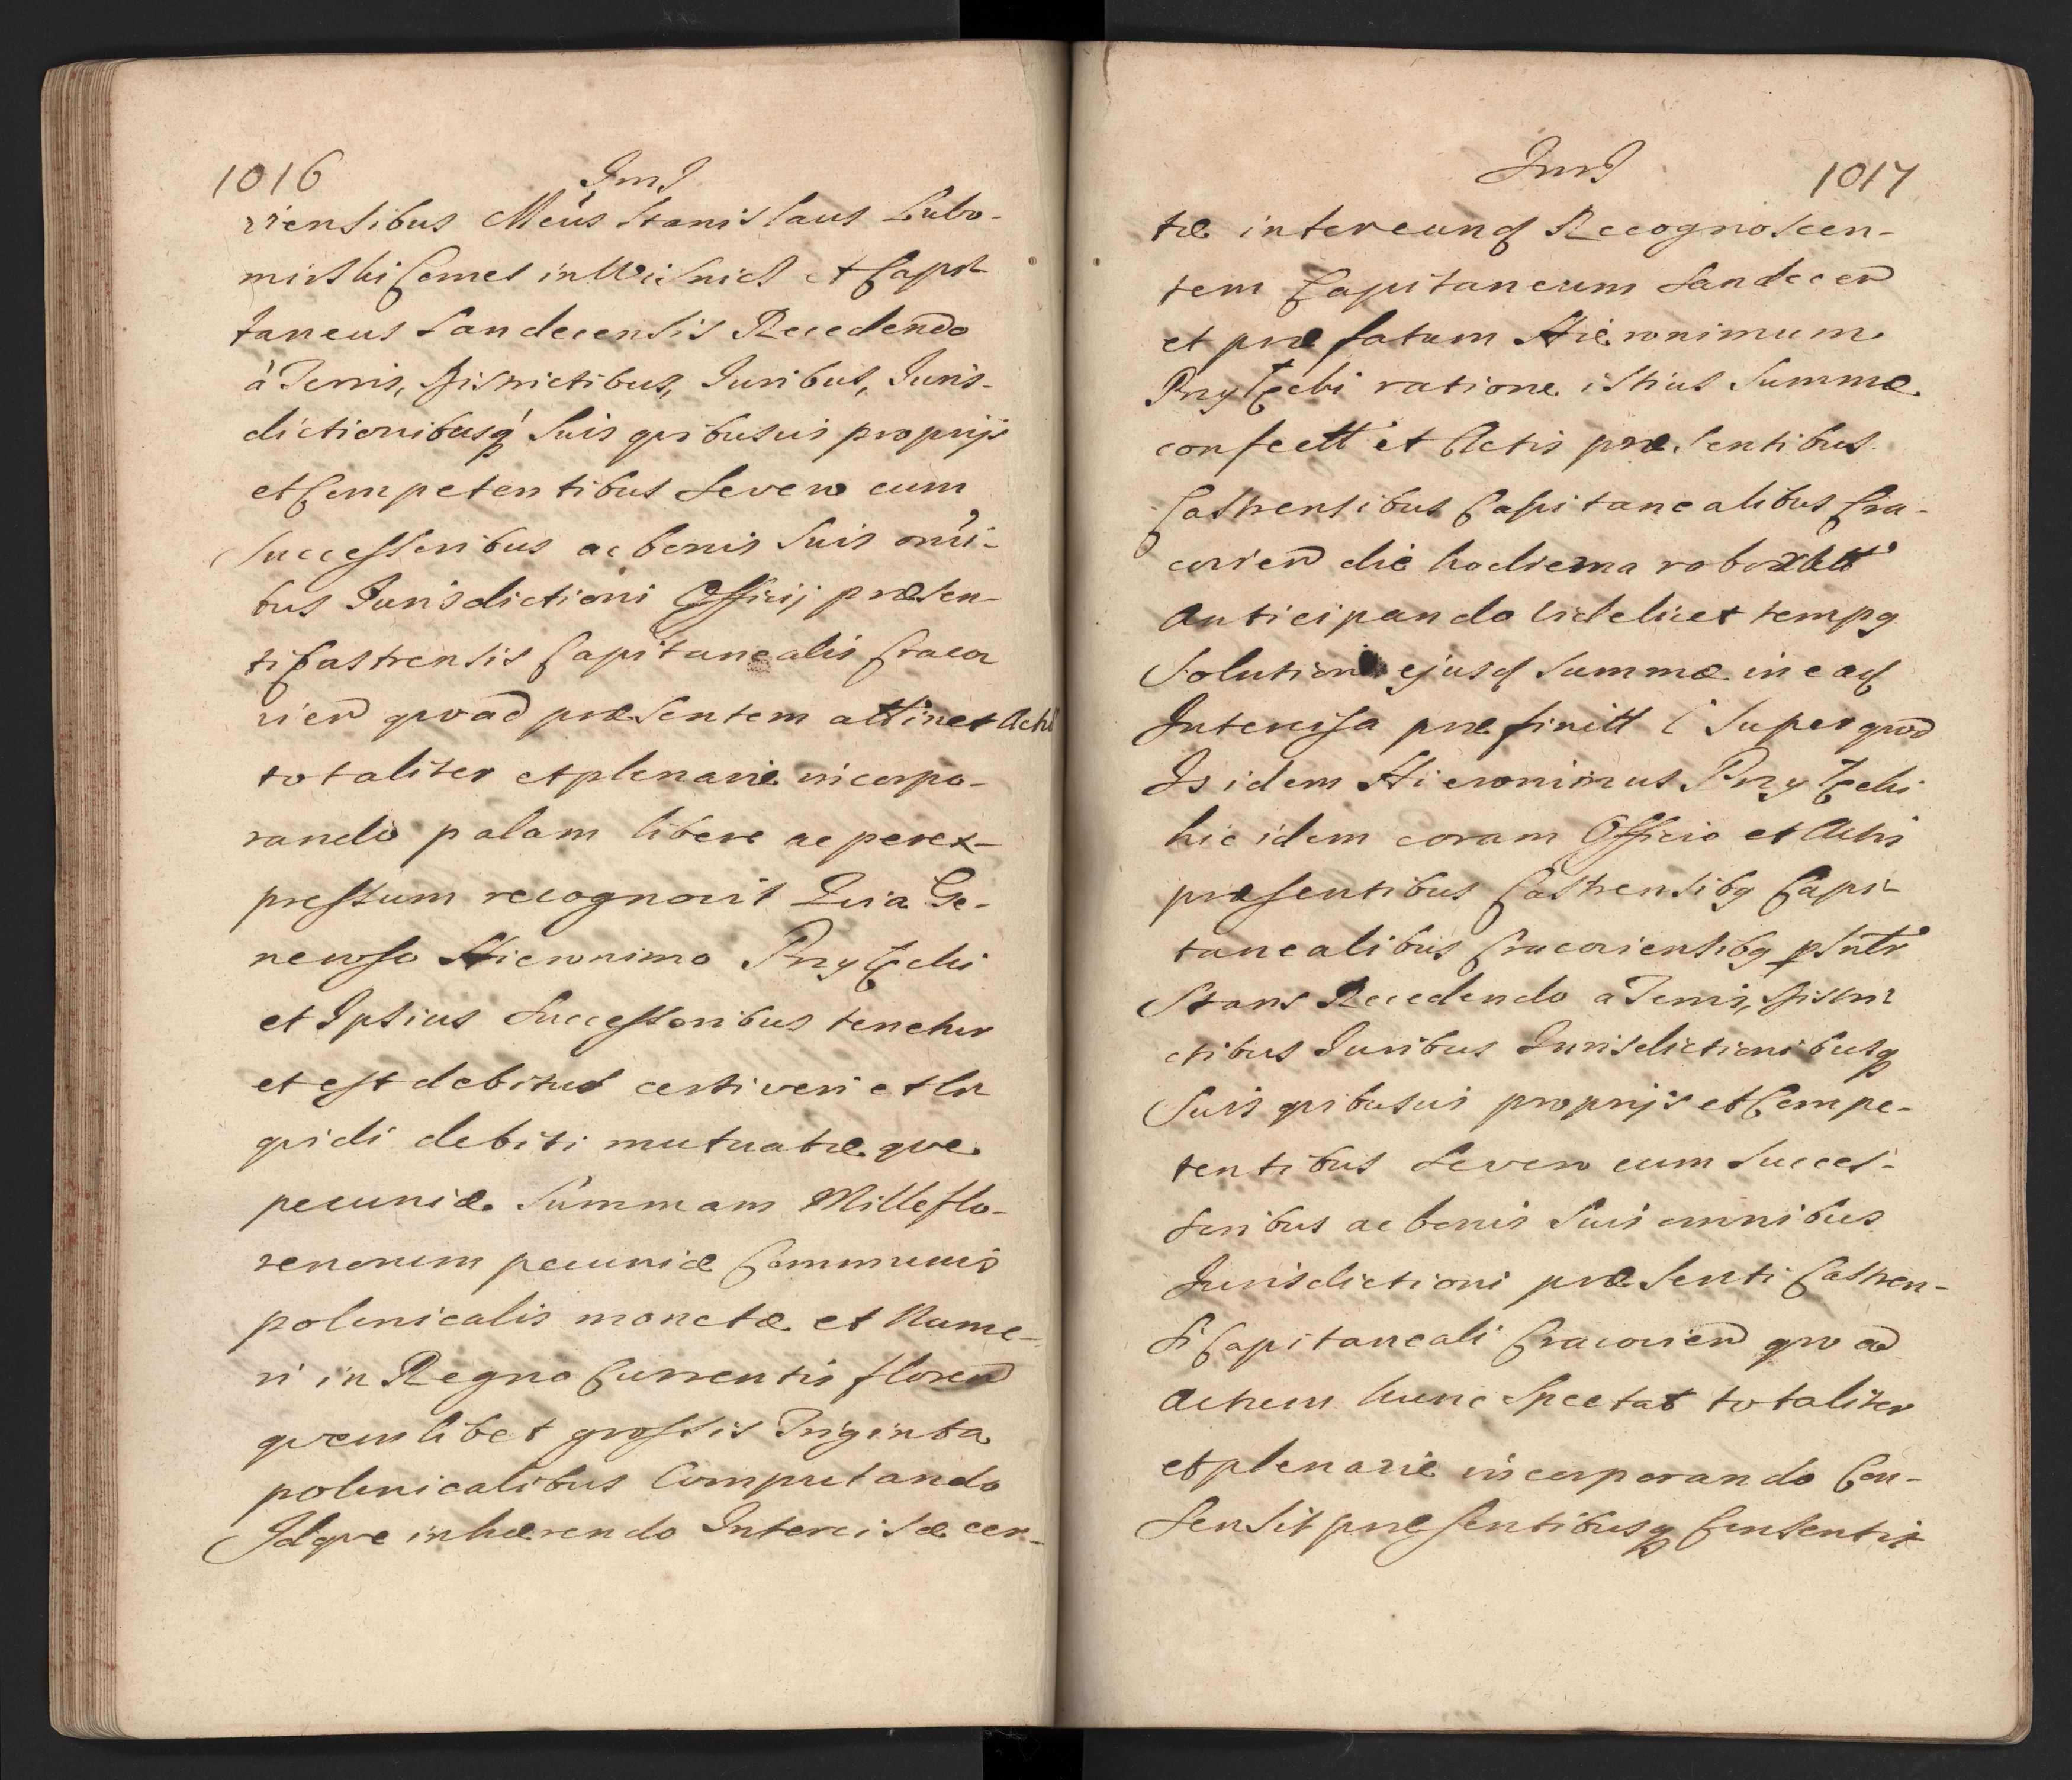 1016
viensibus M̃cus Stanislaus Lubo-
mirski Comes in Wisnicz et Capi-
taneus Sandecensis Recedendo
à Terris, Districtibus, Juribus, Juris-
dictionibusq́ Suis quibusuis proprijs
et Competentibus Seveno cum
Successoribus ac bonis Suis om̃i-
bus Jurisdictioni Officij præsen-
ti Castrensis Capitanealis Craco
vien quoad præsentem attinet Actū
totaliter et plenarie incorpo-
rando palam libere ac perex-
pressum recognovit Quia Ge-
neroso Hieronimo Przyłęcki
et Ipsius Successoribus tenetur
et est debitus certi veri et li
quidi debiti mutuatæ que
pecuniæ Summam Mille flo-
renorum pecuniæ Communis
polonicalis monetæ et Nume-
ri in Regno Currentis floren
quemlibet grossis Triginta
polonicalibus Computando
Idque inhærendo Intercisæ cer-
1017
tæ inter eunq Recognoscen-
tem Capitaneum Sandecen
et præfatum Hieronimum
Przyłęcki ratione istius Summæ
confectt et Actis præsentibus
Castrensibus Capitanealibus Cra-
covien die hodierna roboratt
Anticipando videlicet tempq
Solutione ejusq Summæ in eaq
Intercisa præfinitt Super quod
Is idem Hieronimus Przyłęcki
hic idem coram Officio et Actis
præsentibus Castrensibq Capi-
tanealibus Cracoviensibq psntr
Stans Recedendo a Terris, Distri
ctibus Juribus Jurisdictionibusq
Suis quibusuis proprijs et Compe-
tentibus Seveno cum Succes-
soribus ac bonis Suis omnibus
Jurisdictioni præsenti Castren-
si Capitaneali Cracovien quoad
Actum hunc Spectat totaliter
et plenarie incorporando Con-
sensit præsentibusq Consentit